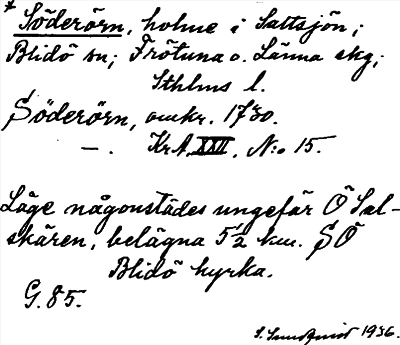 * Söderörn, holme i Saltsjön;
Blidö sn; Frötuna o. Länna skg;
Sthlms l.
Söderörn, omkr. 1730.
—. KrA, XXII, N:o 15.
Läge någonstädes ungefär Ö Sal-
skären, belägna 5 1/2 km. SÖ
Blidö kyrka.
G. 85.
S. Sundquist 1936.